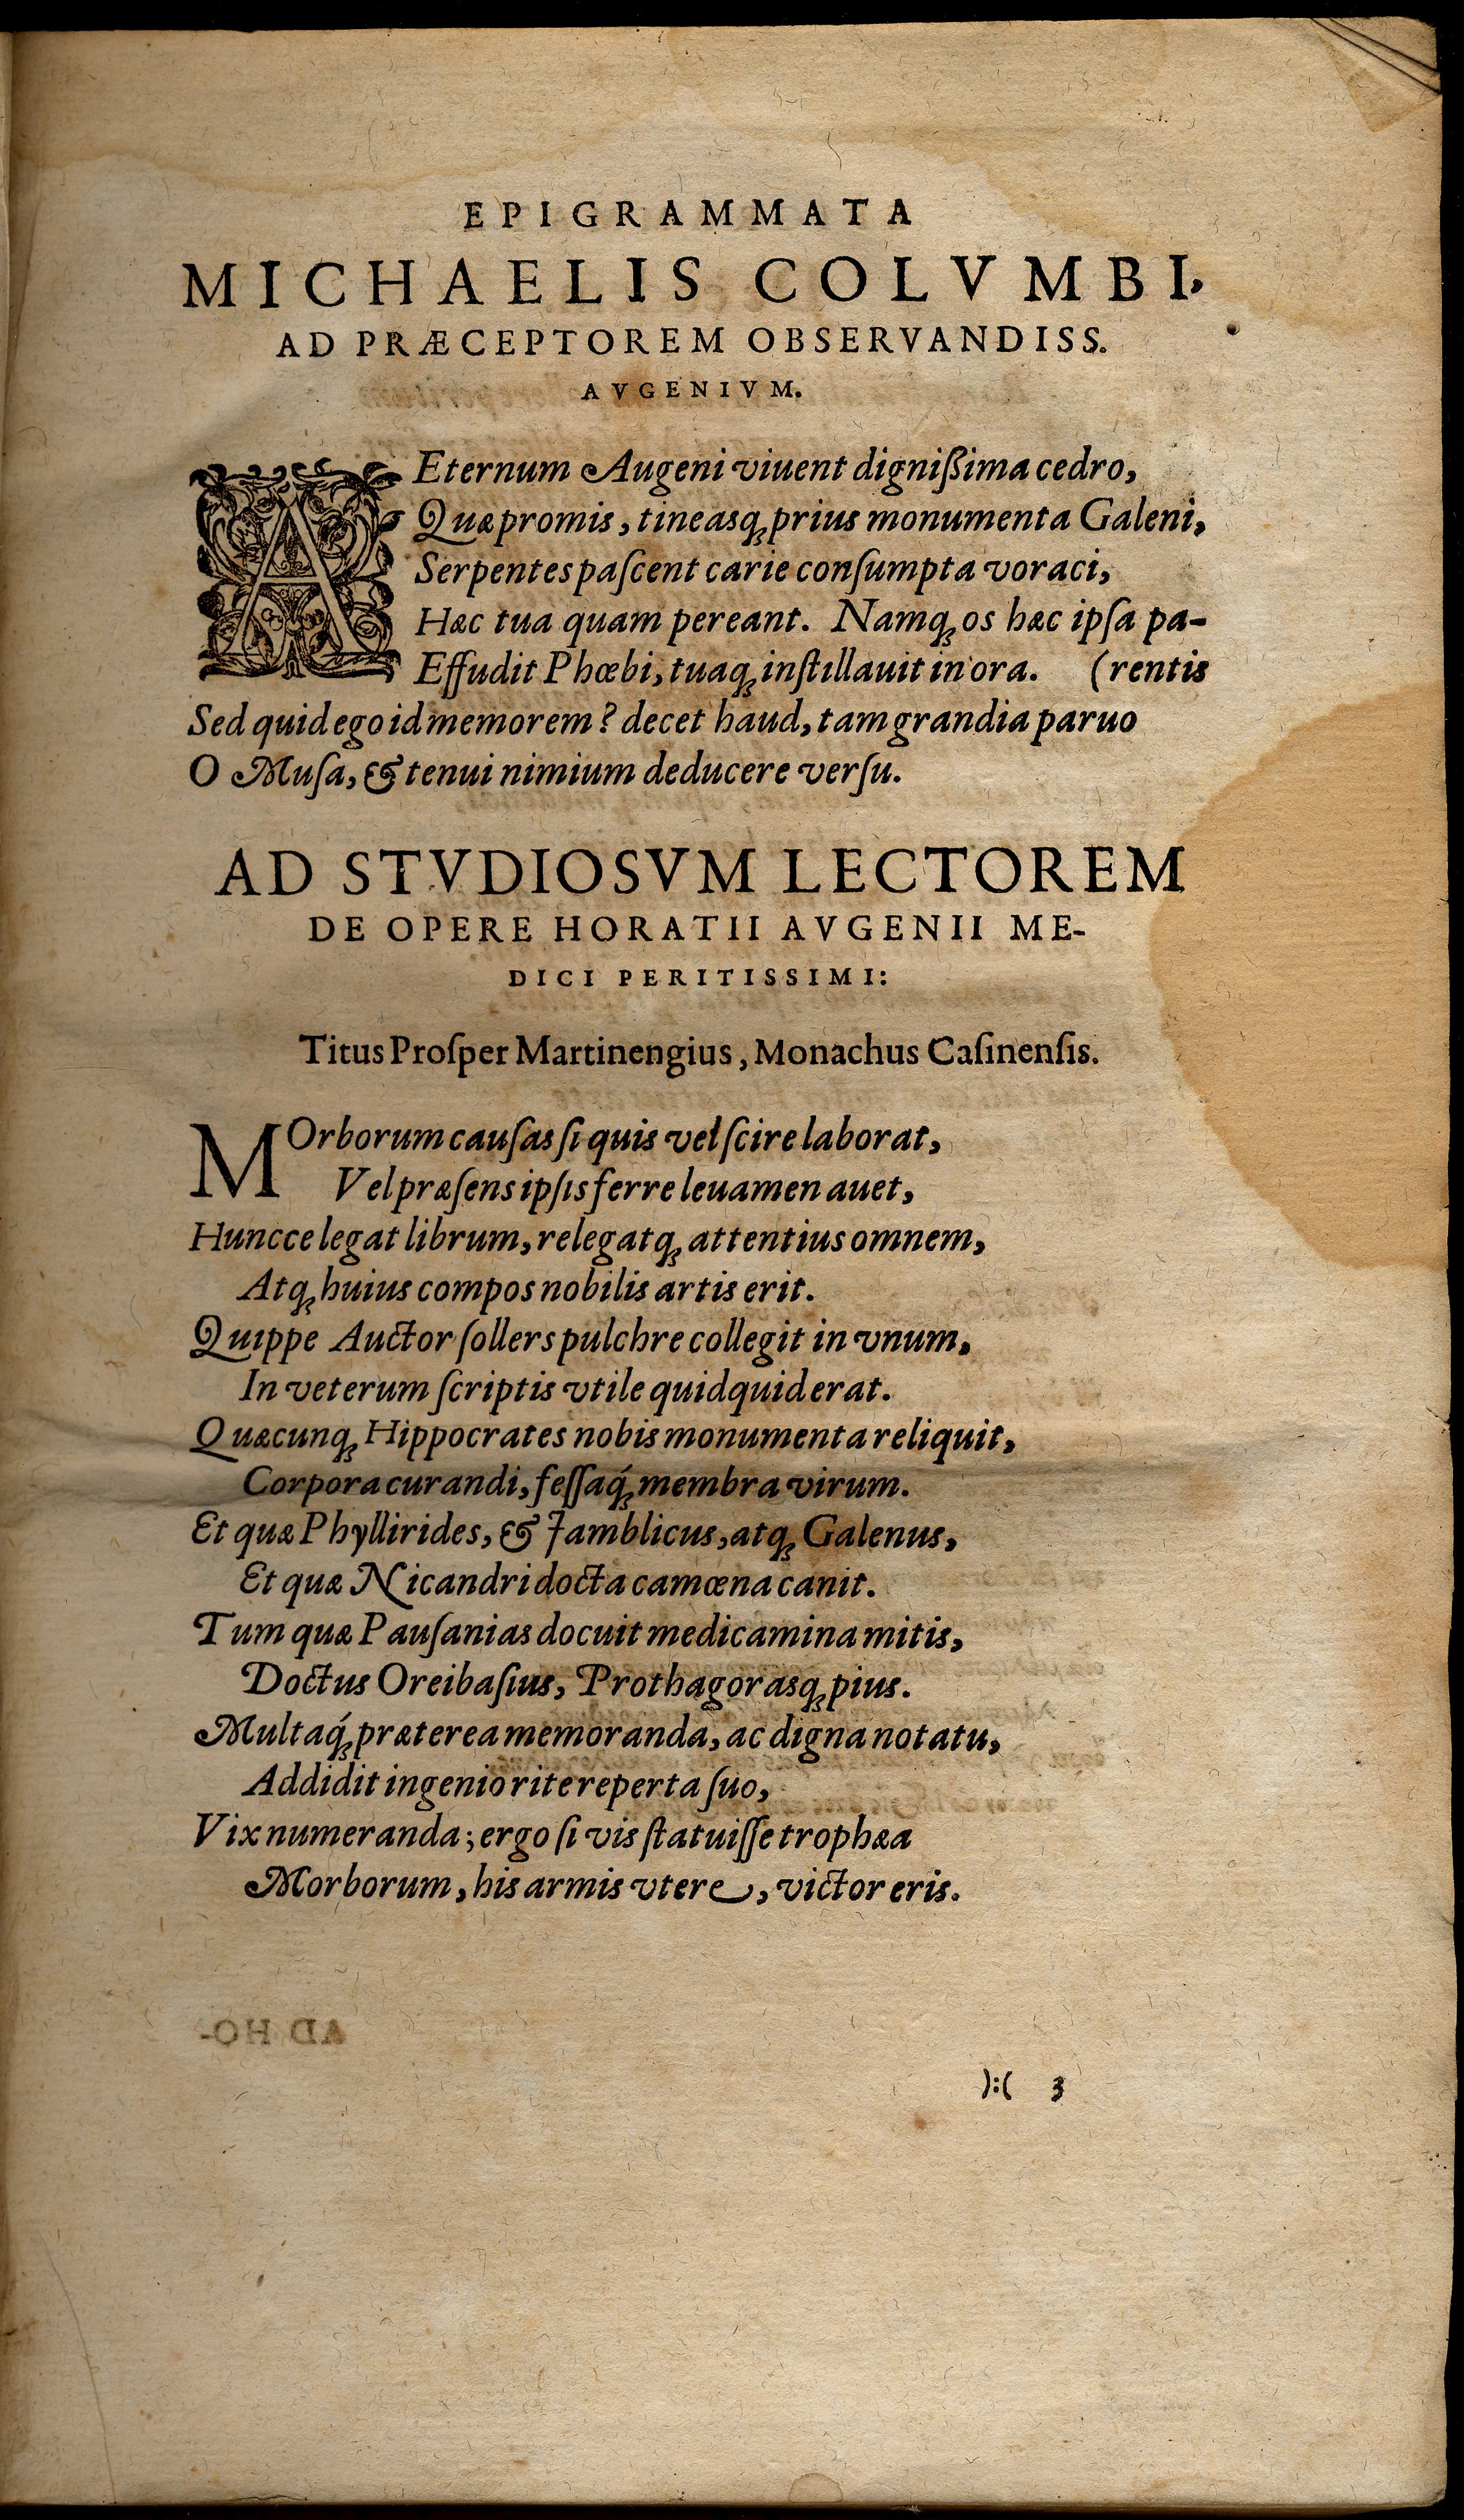 EPIGRAMMATA
MICHAELIS COLVMBI,
AD PRÆCEPTOREM OBSERVANDISS.
AVGENIVM.
AEternum Augeni viuent dignißima cedro,
Quæ promis, tineasq; prius monumenta Galeni,
Serpentes paſcent carie conſumpta voraci,
Hæc tua quam pereant. Namq; os hæc ipſa pa-
Effudit Phœbi, tuaq; inſtillauit in ora. (rentis
Sed quid ego id memorem? decet haud, tam grandia paruo
O Muſa, & tenui nimium deducere verſu.
AD STVDIOSVM LECTOREM
DE OPERE HORATII AVGENII ME-
DICI PERITISSIMI:
Titus Proſper Martinengius, Monachus Caſinenſis.
MOrborum cauſas ſi quis vel ſcire laborat,
Vel præſens ipſis ferre leuamen auet,
Huncce legat librum, relegatq; attentius omnem,
Atq; huius compos nobilis artis erit.
Quippe Auctor ſollers pulchre collegit in vnum,
In veterum ſcriptis vtile quidquid erat.
Quæcunq; Hippocrates nobis monumenta reliquit,
Corpora curandi, feſſaq́; membra virum.
Et quæ Phyllirides, & Jamblicus, atq; Galenus,
Et quæ Nicandri docta camœna canit.
Tum quæ Pauſanias docuit medicamina mitis,
Doctus Oreibaſius, Prothagorasq; pius.
Multaq́; præterea memoranda, ac digna notatu,
Addidit ingenio rite reperta ſuo,
Vix numeranda; ergo ſi vis ſtatuiſſe trophæa
Morborum, his armis vtere, victor eris.
):( 3